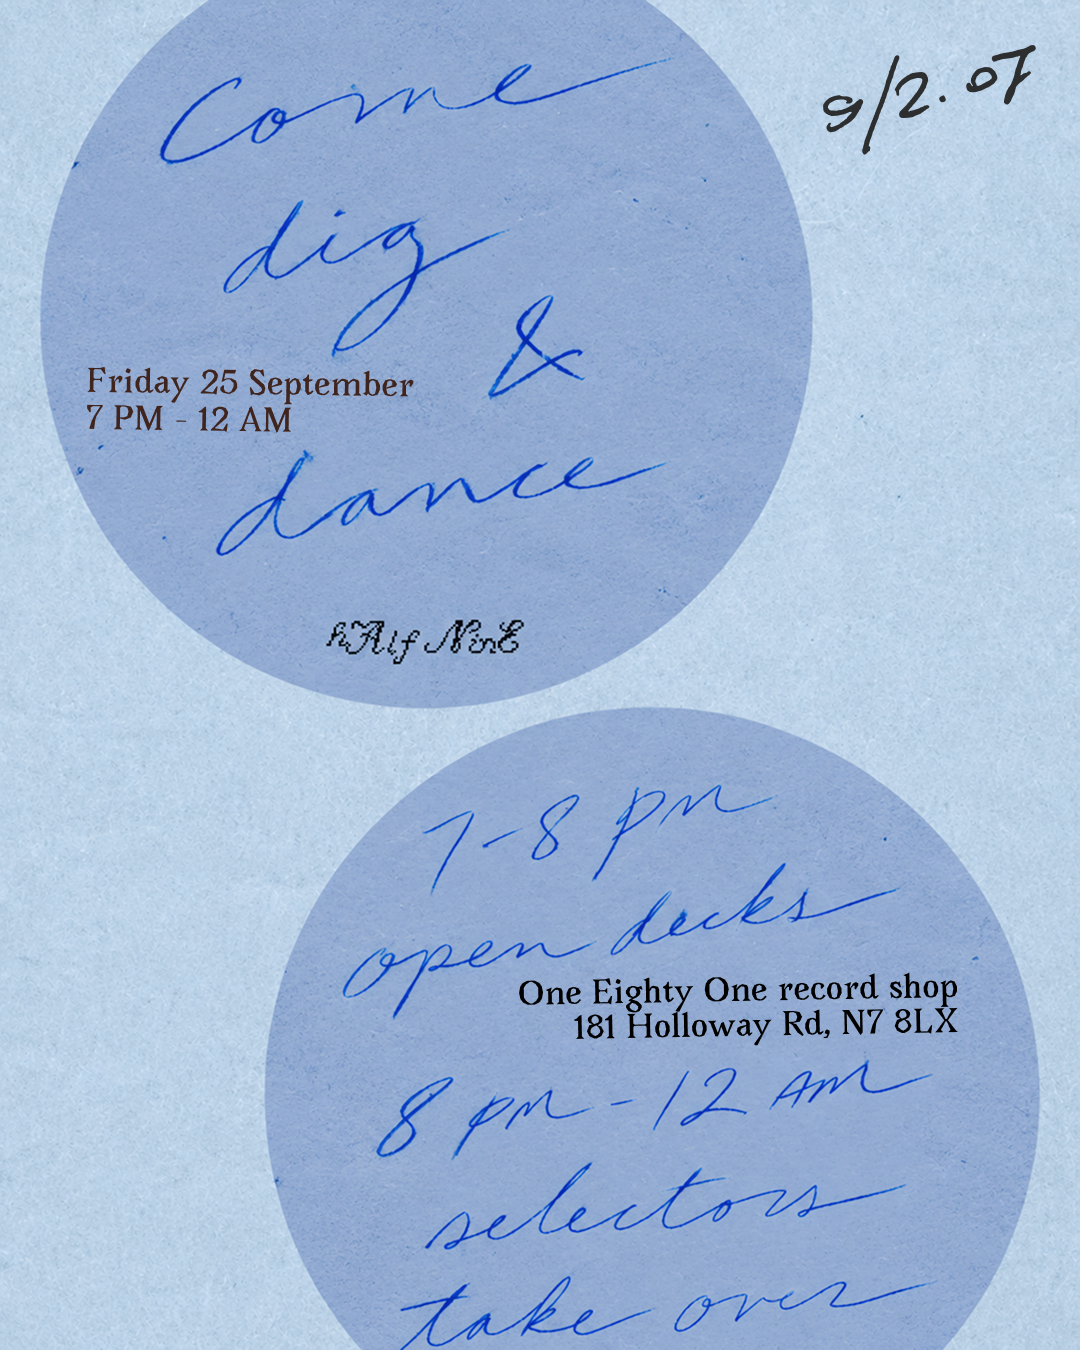 Come
9/2.07
dig
&
Friday 25 September
7 PM - 12 AM
dance
hAlf NinE
7-8 pm
open decks
One Eighty One record shop
181 Holloway Rd, N7 8LX
8 pm - 12 AM
selectors
take over